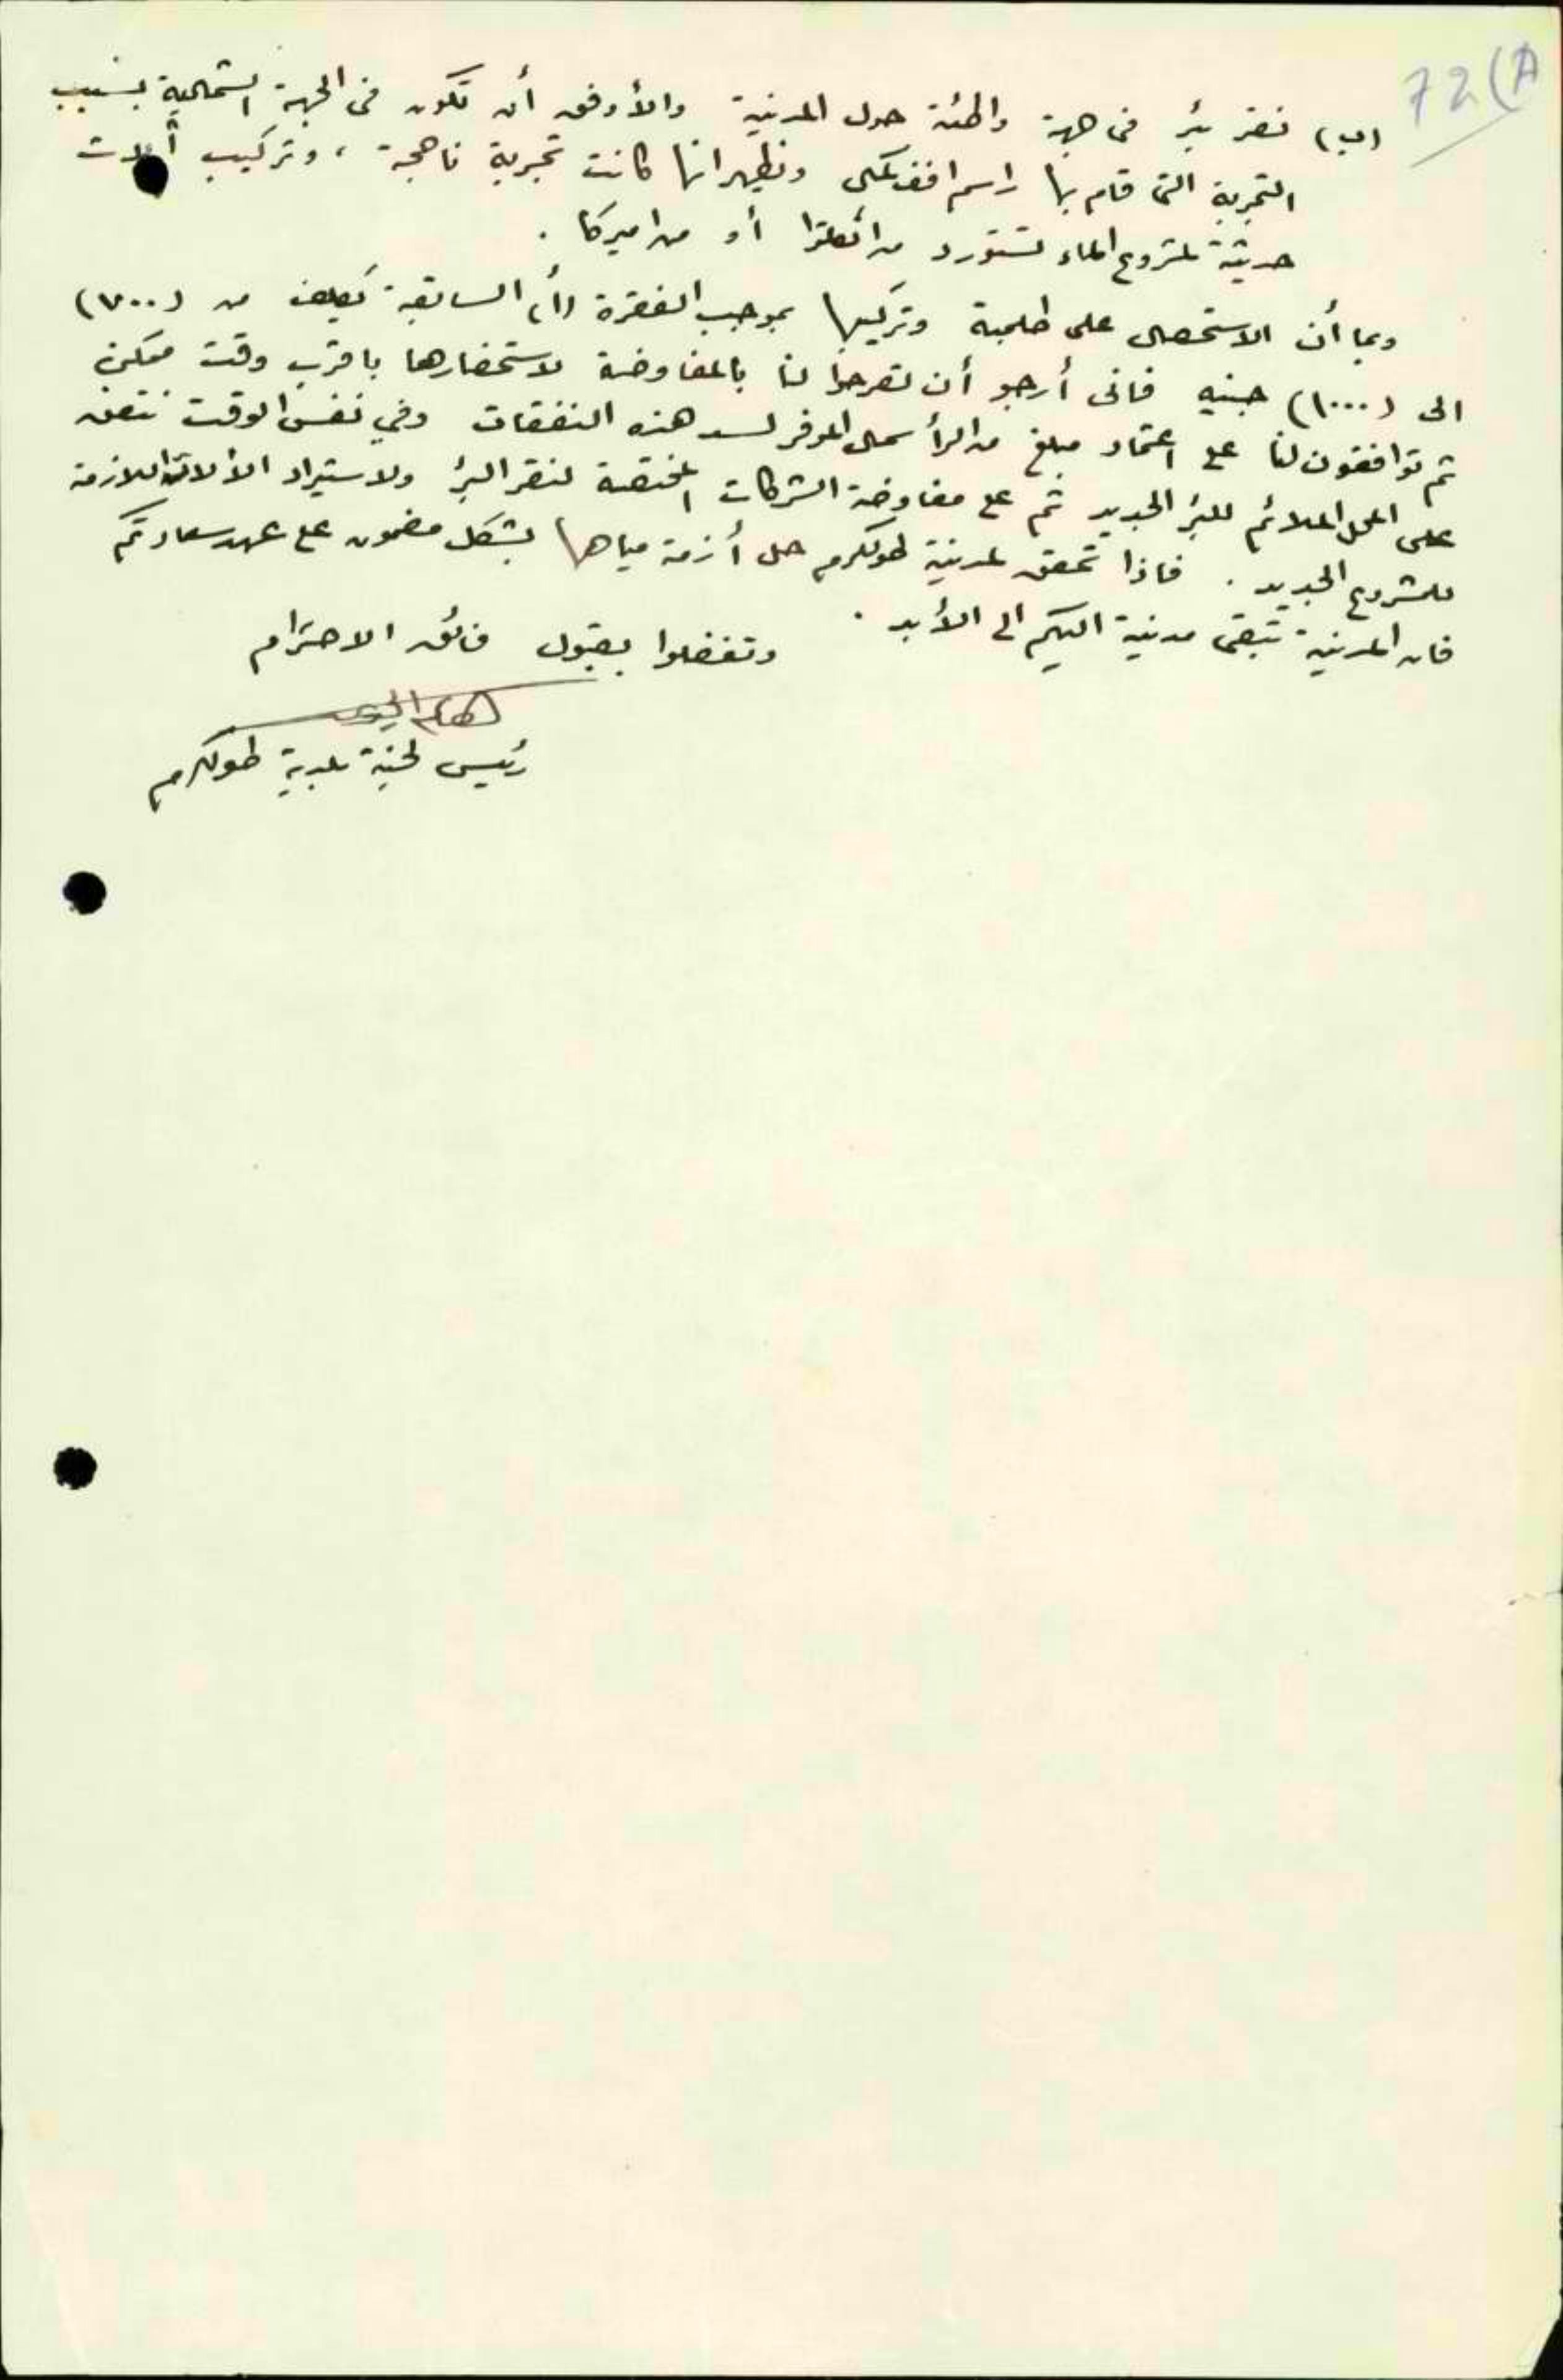 72(A
(ب) نقر بئر فى جهة واطئة حول المدينة والأوفق أن تكون فى الجهة الشمالية بسبب
التجربة التى قام بها راسم افندى وظهر انها كانت تجربة ناجحة ، وتركيب ألات
حديثة لمشروع الماء تستورد من انكلترا أو من اميركا .
وبما أن الاستحصال على طلمبة وتركيبها بموجب الفقرة (أ) السابقة يكلف من (٧٠٠)
الى (١٠٠٠) جنيه فانى أرجو أن تصرحوا لنا بالمفاوضة لاستحضارها باقرب وقت ممكن
ثم توافقون لنا على اعتماد مبلغ من الرأسمال الموفر لسد هذه النفقات وفي نفس الوقت نتفق
على المحل الملائم للبئر الجديد ثم على مفاوضة الشركات المختصة لنقر البئر ولاستيراد الألات اللازمة
للمشروع الجديد . فاذا تحقق لمدينة طولكرم حل أزمة مياهها بشكل مضمون على عهد سعادتكم
فان المدينة تبقى مدينة اليكم الى الأبد .
وتفضلوا بقبول فائق الاحترام
رئيس لجنة بلدية طولكرم